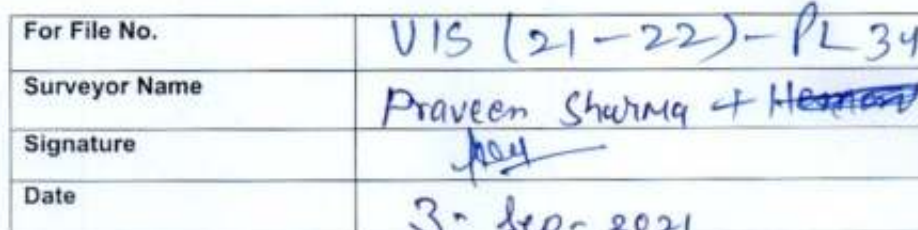 For File No. VIS (21-22)-PL34
Surveyor Name Praveen Sharma +
Signature
Date 3- Sep- 2021